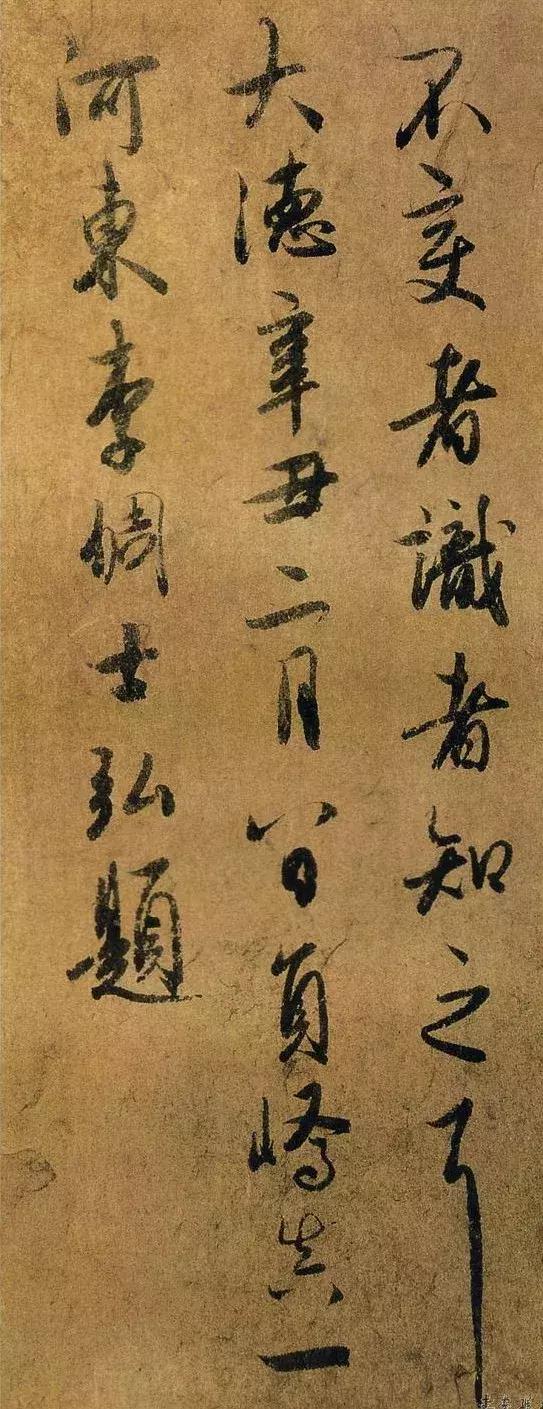 不變者識者知之耳
大德辛丑二月八日員嶠真一
河東李倜士弘題